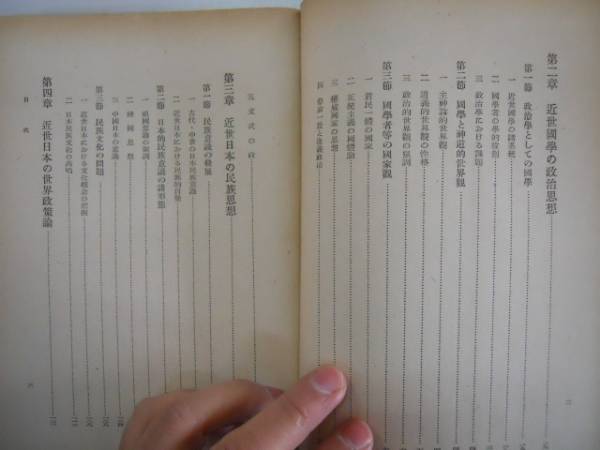 第二章 近世國學の政治思想
第一節 政治學としての國學
一 近世國學の諸系統
二 國學者の學的役割
三 政治學における課題
第二節 國學と神道的世界觀
一 主神論的世界觀
二 道義的世界觀の性格
三 政治的世界觀の強調
第三節 國學者等の國家觀
一 君民一體の國家
二 正統主義の國體論
三 權威國家の思想
四
五 文武の政
第三章 近世日本の民族思想
第一節 民族意識の發展
一 古代・中世の日本民族意識
二 近世日本における民族的自覺
第二節 日本的民族意識の諸形態
一 祖國思想の強調
二 神國思想
三 中國日本の意識
第三節 民族文化の問題
一 近世日本における文化概念の把握
二 日本民族文化の高唱
第四章 近世日本の世界政策論
目次